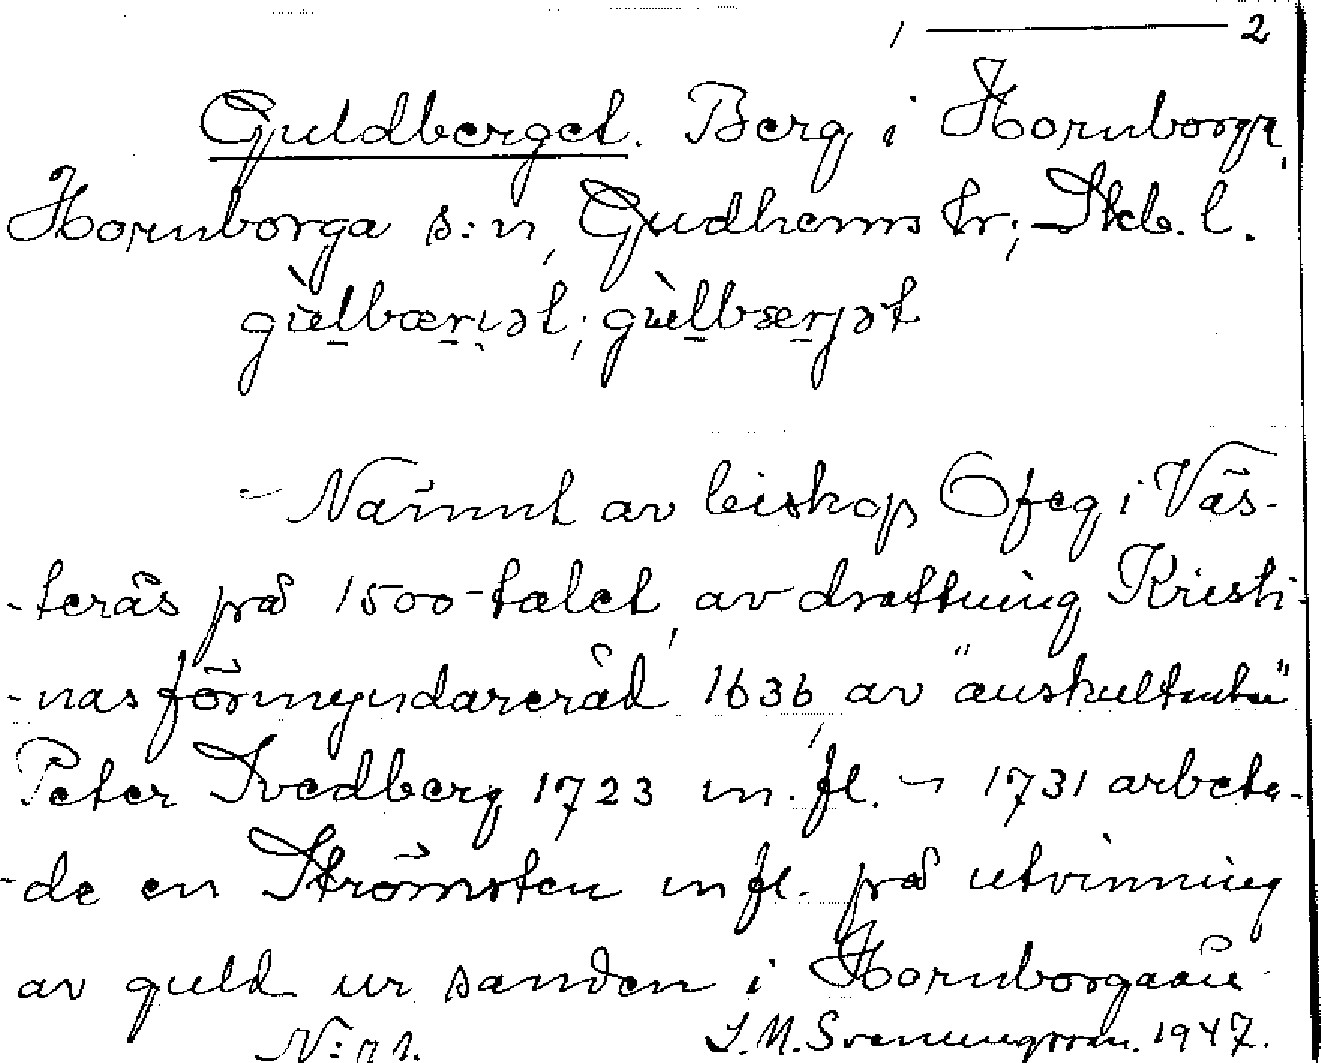 / ——— 2
Guldberget. Berg i Hornborga,
Hornborga s:n, Gudhems hr; Skb. l.
gùlbærıət; gùlbærjət
- Nämnt av biskop Ofeg i Väs-
-terås på 1500-talet, av drottning Kristi-
-nas förmyndareråd 1636, av "auskultanten"
Peter Svedberg 1723 m. fl. - 1731 arbeta-
-de en Strömsten m fl. på utvinning
av guld ur sanden i Hornborgaån
S.M. Svenungsson. 1947.